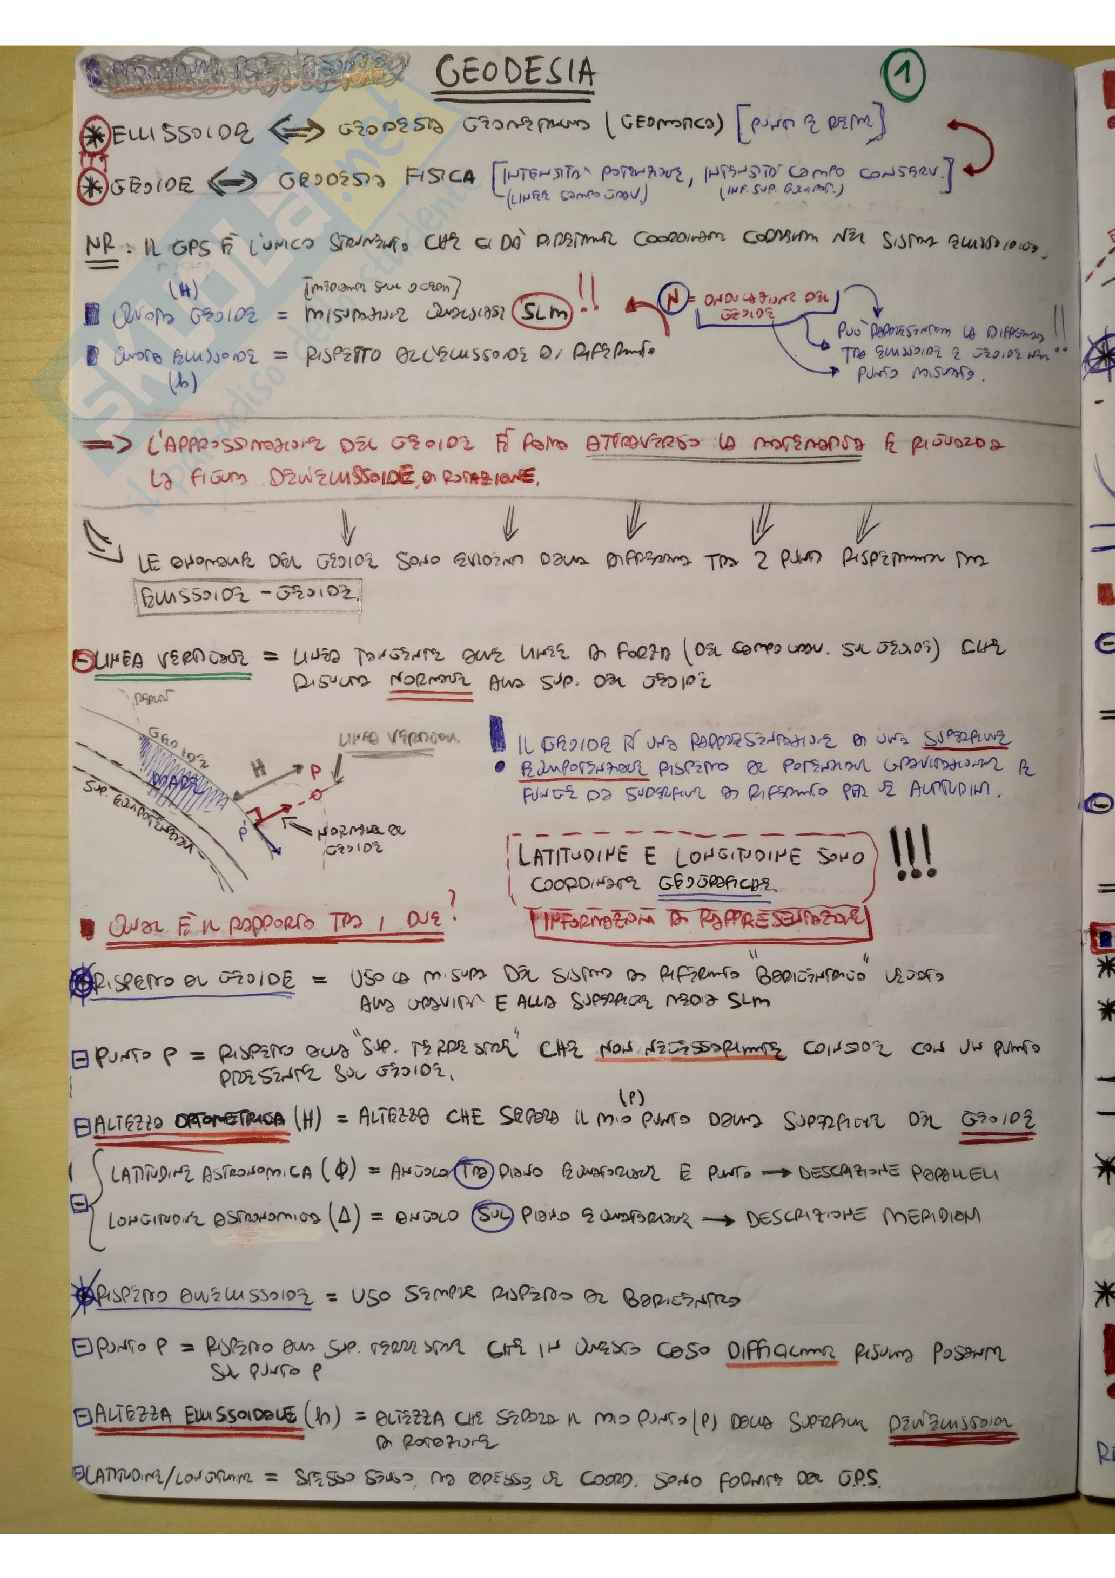 GEODESIA
1
* ELLISSOIDE <=> GEODESIA GEOMETRICA (GEOMATICA) [PUNTI E RETTE]
* GEOIDE <=> GEODESIA FISICA [INTENSITÀ POTENZIALE, INTENSITÀ CAMPO CONSERV.]
(LINEE CAMPO GRAV.)
NB: IL GPS È L'UNICO STRUMENTO CHE CI DÀ DIRETTAM. COORDINATE NEL SISTEMA ELLISSOIDICO.
(H)
QUOTA GEOIDE = MISURAZIONE QUALSIASI SLM !!
N = ONDULAZIONE DEL
GEOIDE
PUÒ RAPPRESENTARE LA DIFFERENZA !!
TRA ELLISSOIDE E GEOIDE NEL
PUNTO MISURATO.
QUOTA ELLISSOIDE = RISPETTO ALL'ELLISSOIDE DI RIFERIMENTO
(h)
=> L'APPROSSIMAZIONE DEL GEOIDE È FATTA ATTRAVERSO LA MATEMATICA E RIGUARDA
LA FIGURA DELL'ELLISSOIDE DI ROTAZIONE.
LE ANOMALIE DEL GEOIDE SONO EVIDENTI DALLA DIFFERENZA TRA 2 PUNTI RISPETTIVAM. TRA
ELLISSOIDE - GEOIDE.
LINEA VERTICALE = LINEA TANGENTE ALLE LINEE DI FORZA (DEL CAMPO GRAV. SUL GEOIDE) CHE
RISULTA NORMALE ALLA SUP. DEL GEOIDE
GEOIDE
MARE
SUP. EQUIPOTENZIALE
H
P
P'
LINEA VERTICALE
NORMALE AL
GEOIDE
IL GEOIDE È UNA RAPPRESENTAZIONE DI UNA SUPERFICIE
EQUIPOTENZIALE RISPETTO AL POTENZIALE GRAVITAZIONALE E
FUNGE DA SUPERFICIE DI RIFERIMENTO PER LE ALTITUDINI.
LATITUDINE E LONGITUDINE SONO
COORDINATE GEOGRAFICHE
!!!
INFORMAZIONI DI RAPPRESENTAZIONE
QUAL È IL RAPPORTO TRA I DUE?
RISPETTO AL GEOIDE = USO LA MISURA DEL SISTEMA DI RIFERIMENTO "BARICENTRICO" LEGATA
ALLA GRAVITÀ E ALLA SUPERFICIE MEDIA SLM
PUNTO P = RISPETTO ALLA "SUP. TERRESTRE" CHE NON NECESSARIAMENTE COINCIDE CON UN PUNTO
PRESENTE SUL GEOIDE.
(P)
ALTEZZA ORTOMETRICA (H) = ALTEZZA CHE SEPARA IL MIO PUNTO DALLA SUPERFICIE DEL GEOIDE
LATITUDINE ASTRONOMICA (Φ) = ANGOLO TRA PIANO EQUATORIALE E PUNTO → DESCRIZIONE PARALLELI
LONGITUDINE ASTRONOMICA (Δ) = ANGOLO SUL PIANO EQUATORIALE → DESCRIZIONE MERIDIANI
RISPETTO ALL'ELLISSOIDE = USO SEMPRE RISPETTO AL BARICENTRO
PUNTO P = RISPETTO ALLA SUP. TERRESTRE CHE IN QUESTO CASO DIFFICILMENTE RISULTA POSARSI
SUL PUNTO P
ALTEZZA ELLISSOIDALE (h) = ALTEZZA CHE SEPARA IL MIO PUNTO (P) DALLA SUPERFICIE DELL'ELLISSOIDE
DI ROTAZIONE
LATITUDINE/LONGITUDINE = STESSO SENSO, MA ADESSO LE COORD. SONO FORNITE DAL G.P.S.